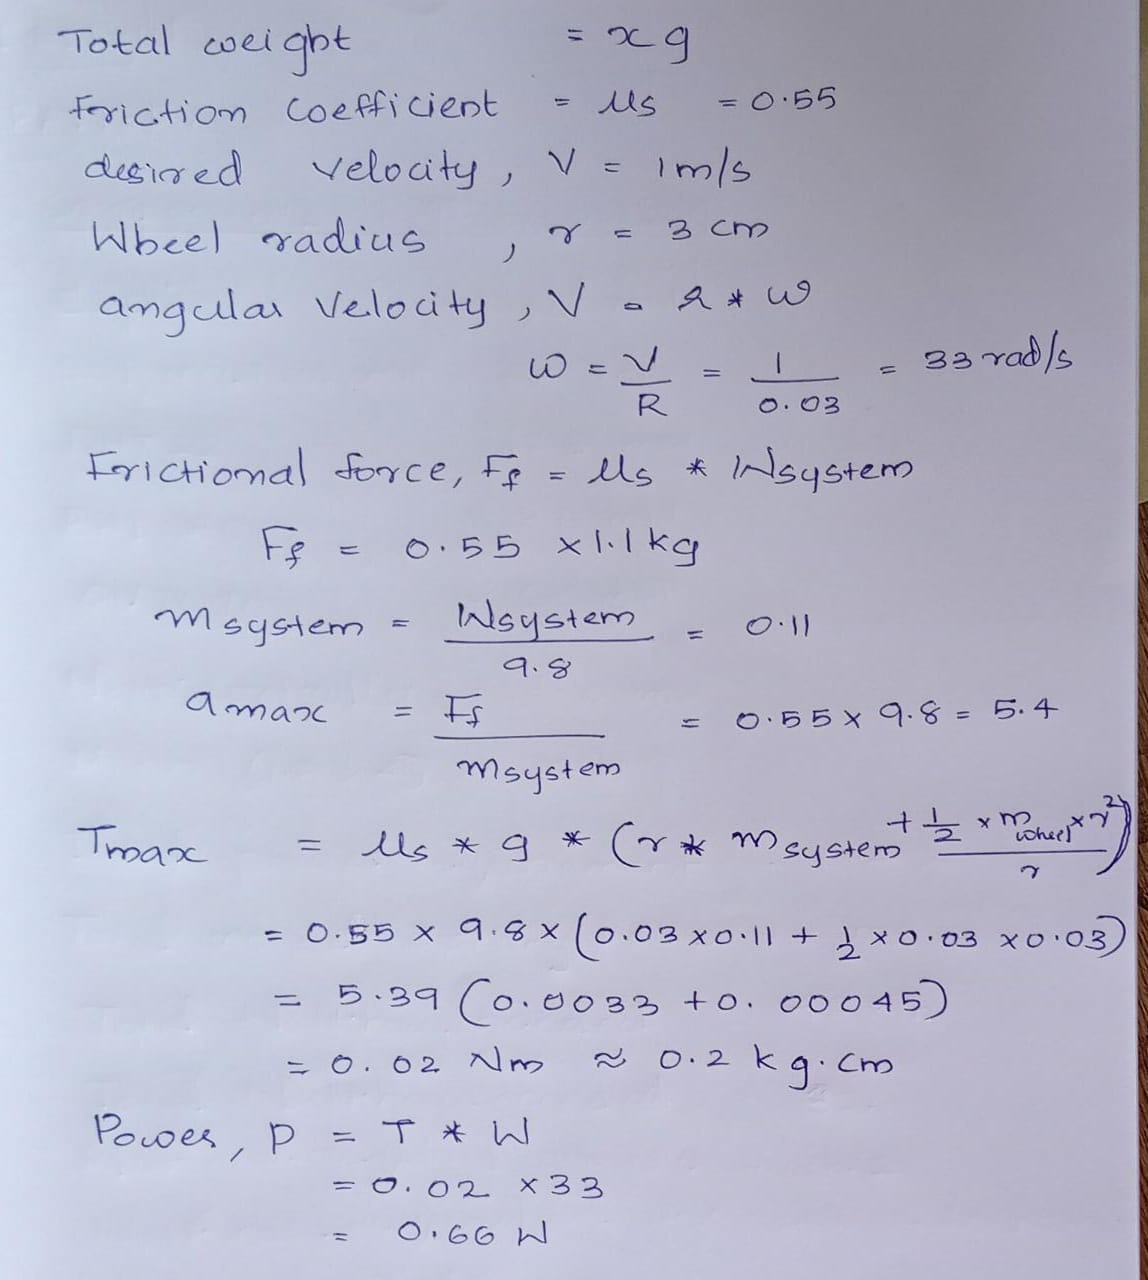 Total weight = x g
Friction Coefficient = μs = 0.55
desired velocity, V = 1m/s
Wheel radius , r = 3 cm
angular Velocity, V = r * ω
ω = V/R = 1/0.03 = 33 rad/s
Frictional force, Ff = μs * Wsystem
Ff = 0.55 x 1.1 kg
m system = Wsystem/9.8 = 0.11
a max = Ff/msystem = 0.55 x 9.8 = 5.4
Tmax = μs * g * (r * m system + 1/2 x m wheel x r²/r)
= 0.55 x 9.8 x (0.03 x 0.11 + 1/2 x 0.03 x 0.03)
= 5.39 (0.0033 + 0.00045)
= 0.02 Nm ≈ 0.2 kg.cm
Power, P = T * W
= 0.02 x 33
= 0.66 W